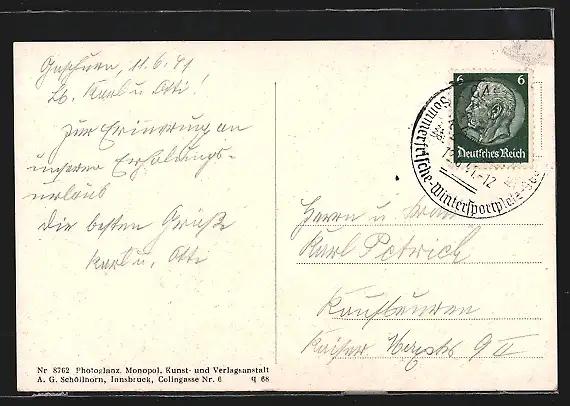 Gaschurn, 11.6.41
Lb. Karl u. Otti!
Zur Erinnerung an
unseren Erholungs-
urlaub
die besten Grüße
Karl u. Otti
Nr 8762 Photoglanz. Monopol. Kunst- und Verlagsanstalt
A. G. Schöllhorn, Innsbruck, Colingasse Nr. 6 q 68
6 6
Deutsches Reich
GAS
12 41.-12
Sommerfrische-Wintersportplatz
Herrn u. Frau
Karl Petrich
Kaufbeuren
Kaiser 9 II